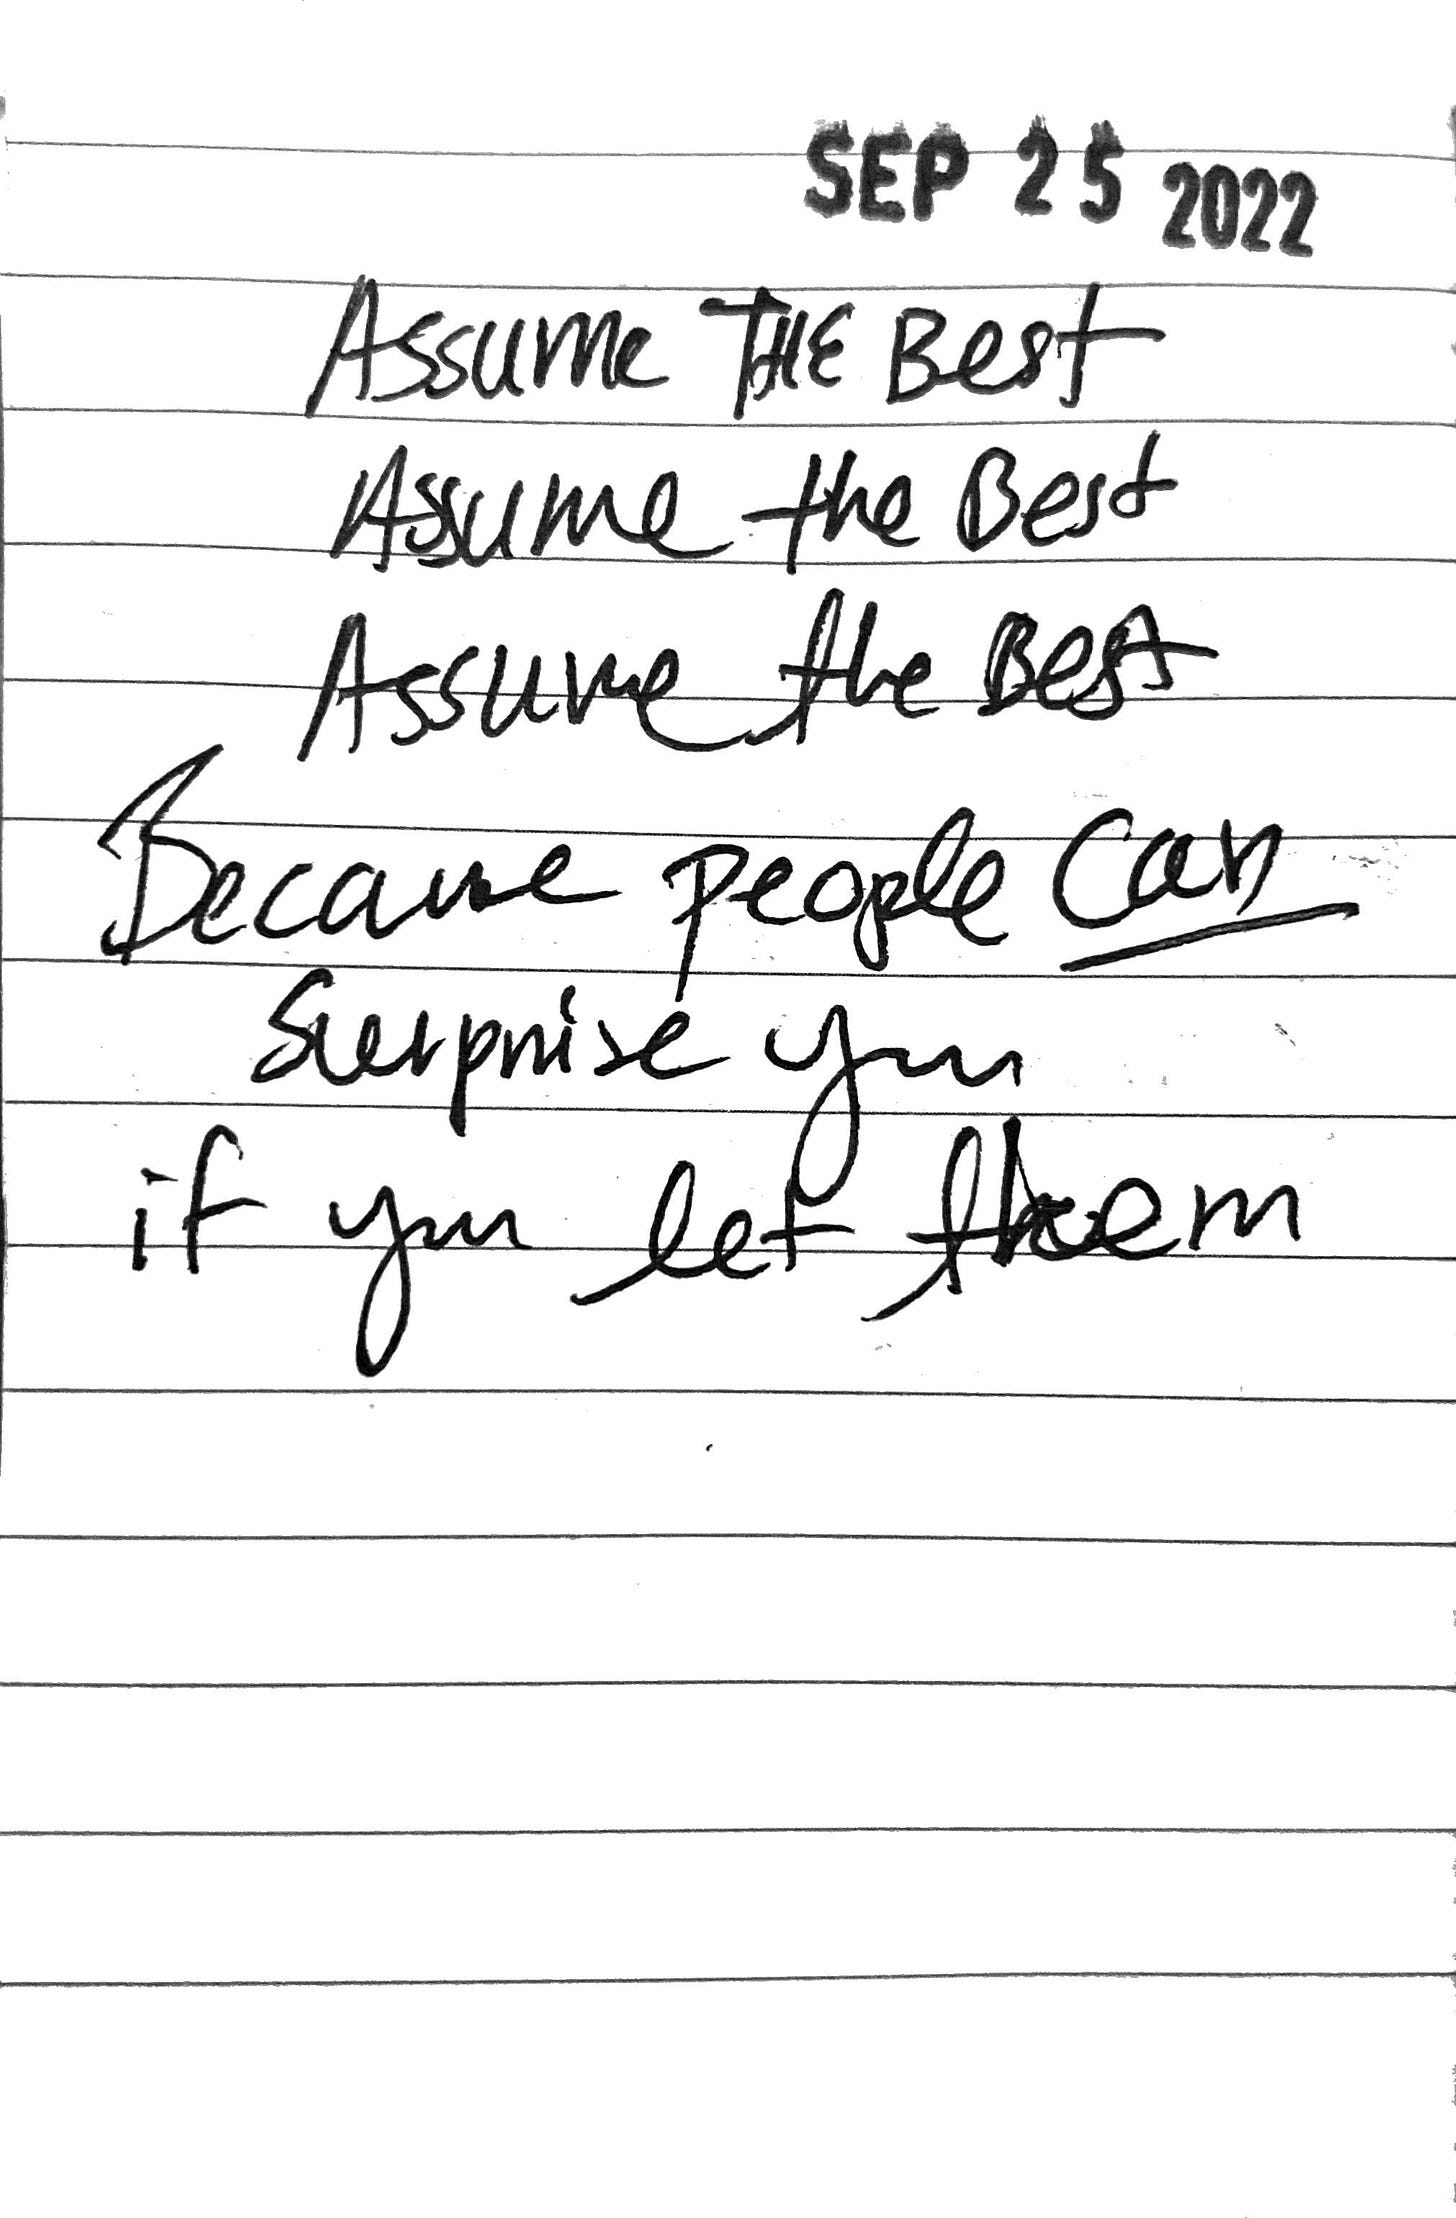 SEP 25 2022
Assume THE Best
Assume the Best
Assume the Best
Because people can
Surprise you
if you let them